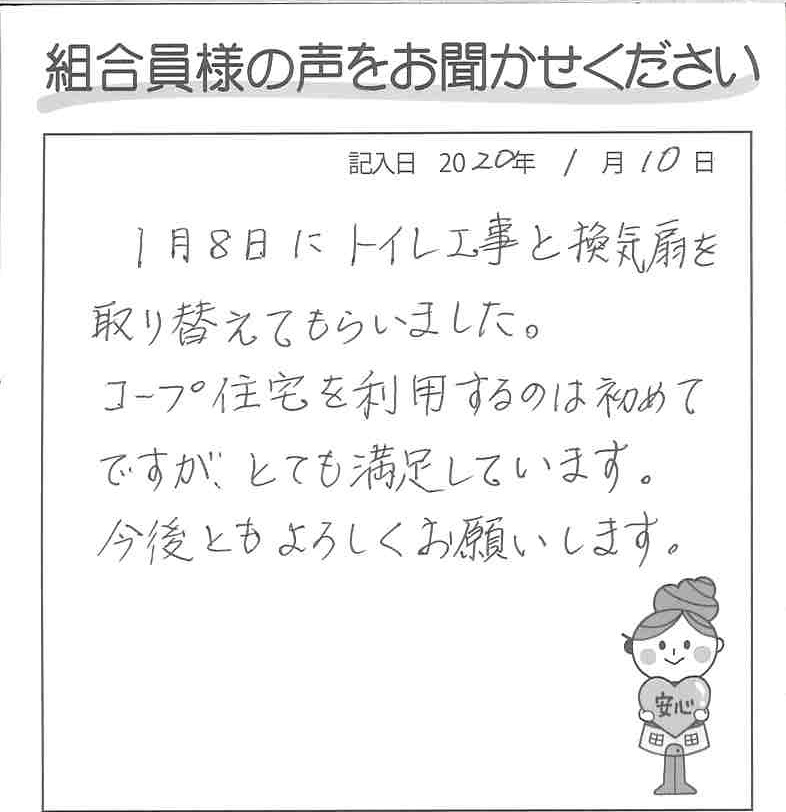 組合員様の声をお聞かせください
記入日 2020年 1月10日
1月8日にトイレ工事と換気扇を
取り替えてもらいました。
コープ住宅を利用するのは初めて
ですが、とても満足しています。
今後ともよろしくお願いします。
安心